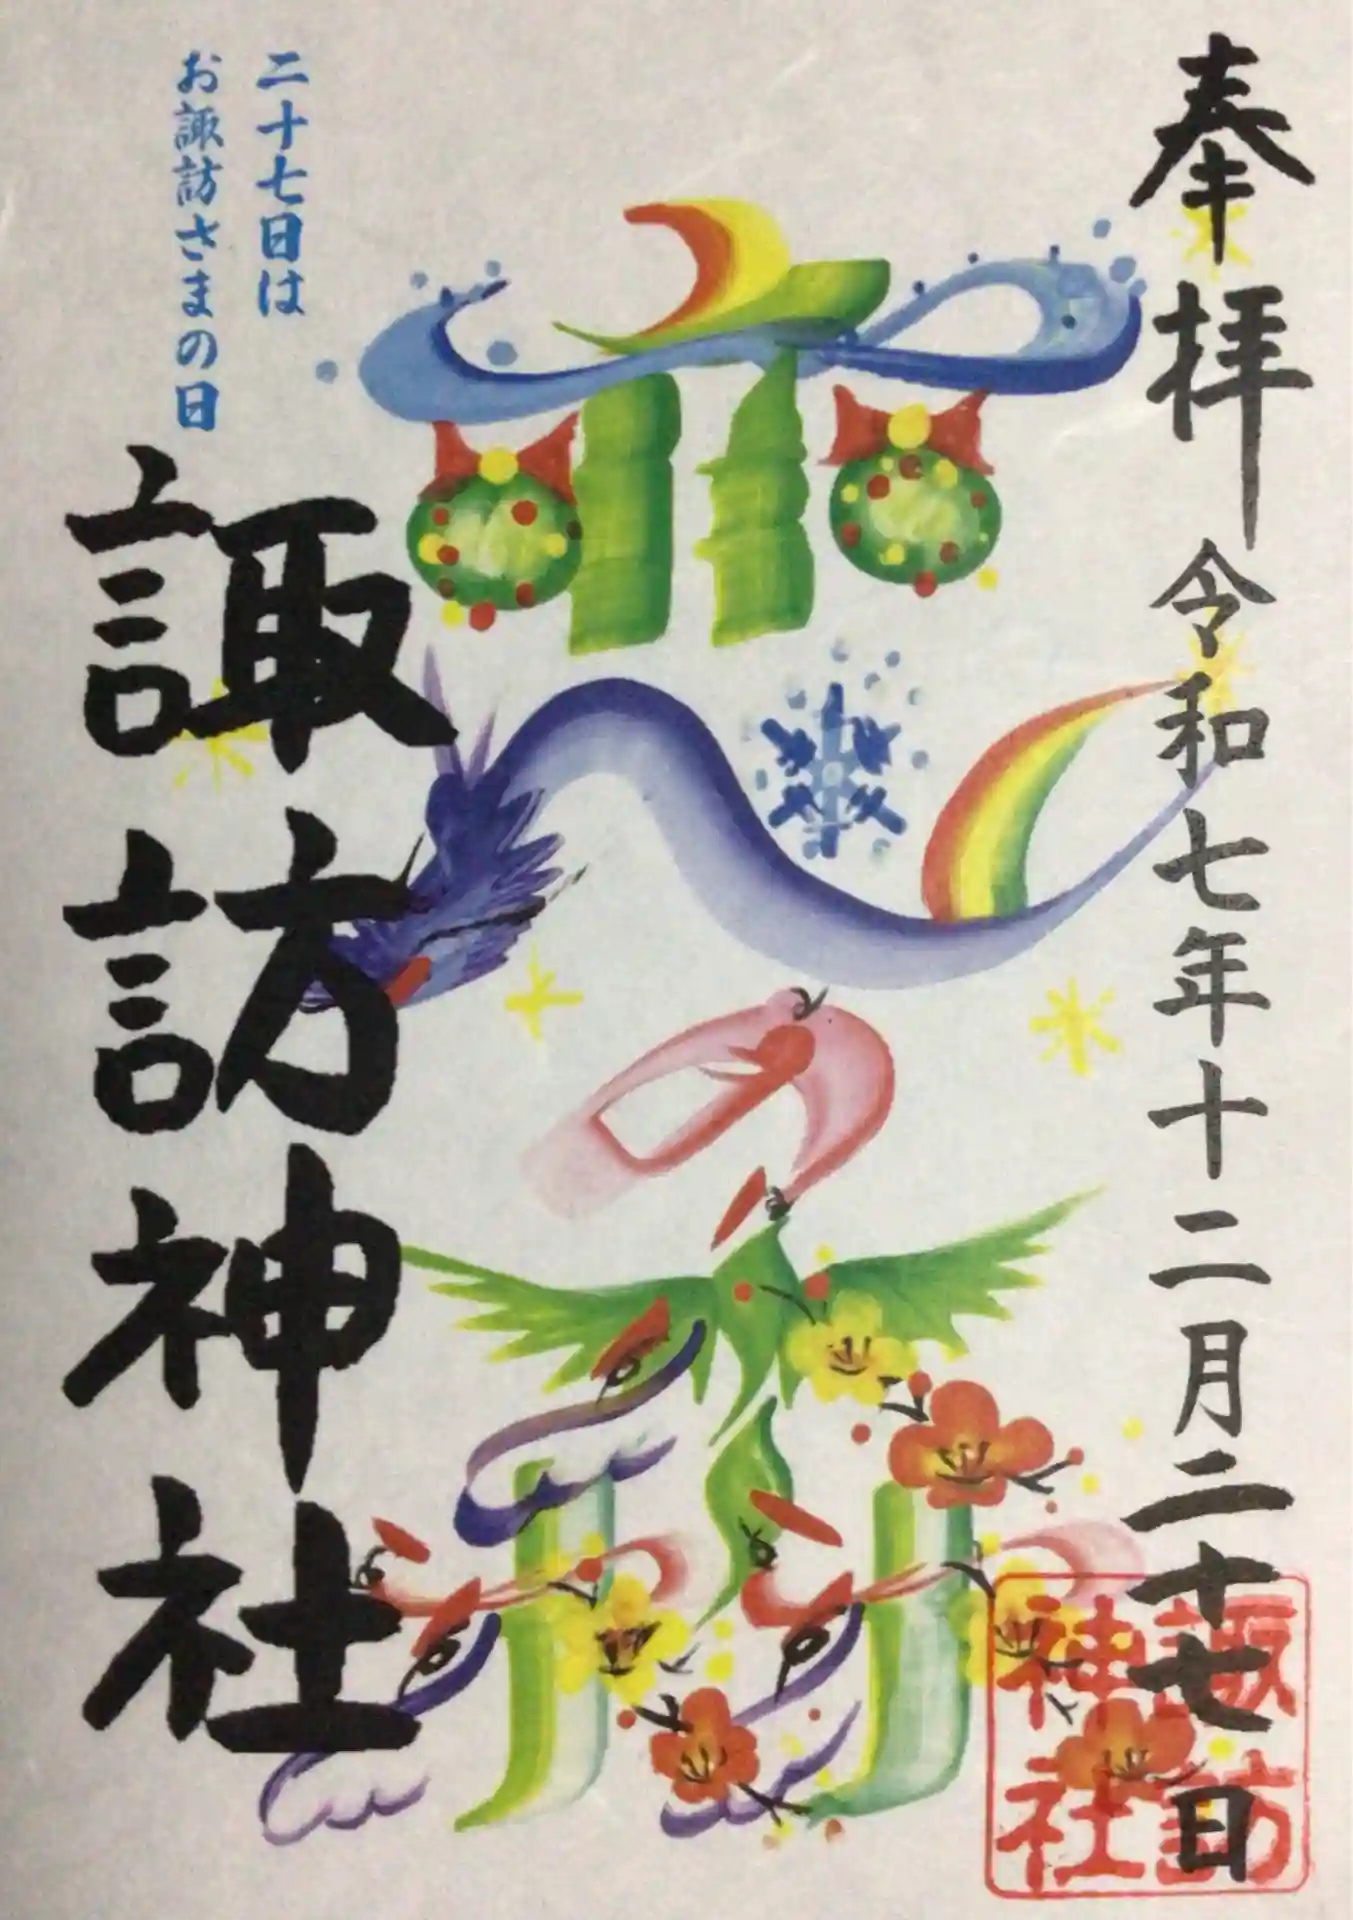 奉拝 令和七年十二月二十七日
諏訪
神社
二十七日は
お諏訪さまの日
諏訪神社